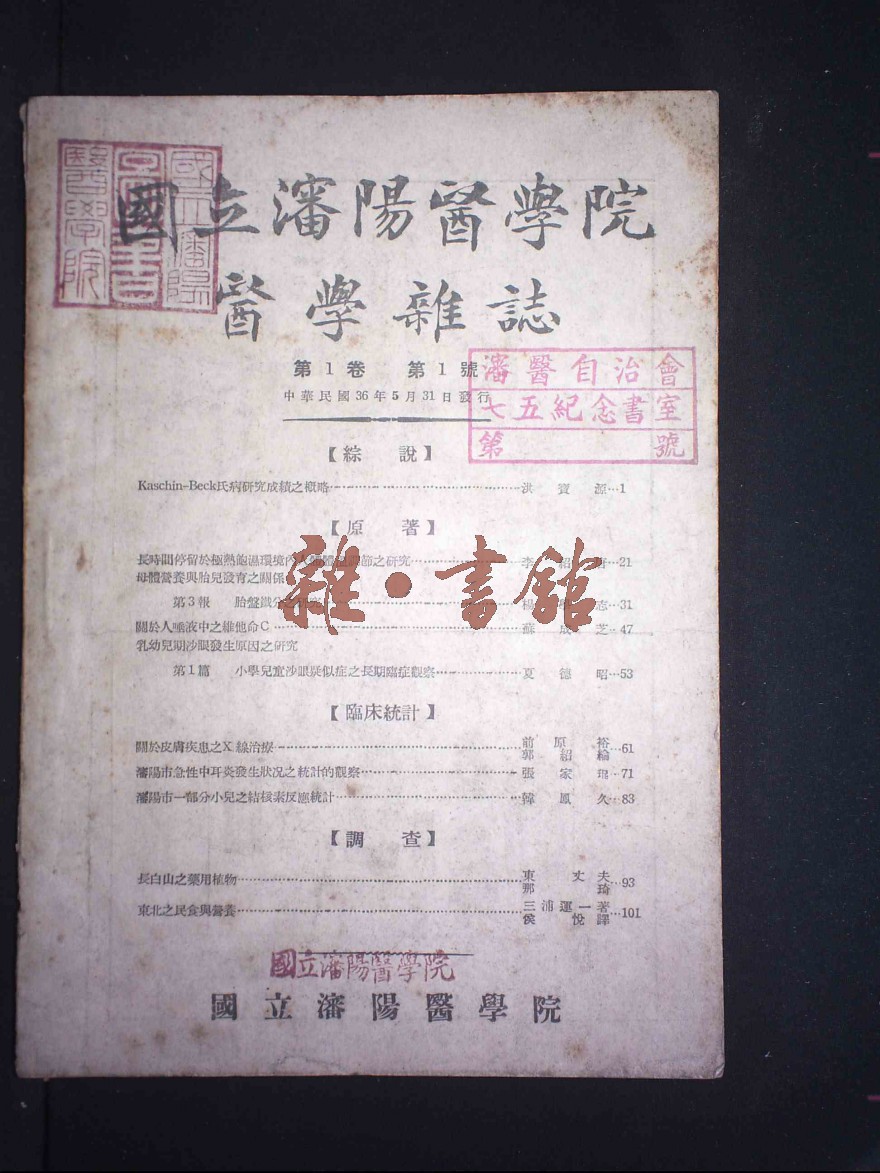 國立瀋陽醫學院
醫學雜誌
國立瀋陽
圖書
醫學院
第1卷 第1號
中華民國36年5月31日發行
瀋醫自治會
七五紀念書室
第 號
【綜 說】
Kaschin-Beck氏病研究成績之概略 洪寶源 1
【原 著】
長時間停留於極熱飽濕環境內人 調節之研究 李 21
母體營養與胎兒發育之關係
第3報 胎盤鐵分之研究 楊 志 31
關於人唾液中之維他命C 蘇 芝 47
乳幼兒期沙眼發生原因之研究
第1篇 小學兒童沙眼疑似症之長期臨症觀察 夏德昭 53
【臨床統計】
關於皮膚疾患之X線治療 前原裕 郭紹綸 61
瀋陽市急性中耳炎發生狀況之統計的觀察 張家琨 71
瀋陽市一部分小兒之結核素反應統計 韓鳳久 83
【調 查】
長白山之藥用植物 東丈夫 那琦 93
東北之民食與營養 三浦運一著 侯悅譯 101
國立瀋陽醫學院
國立瀋陽醫學院
雜·書館